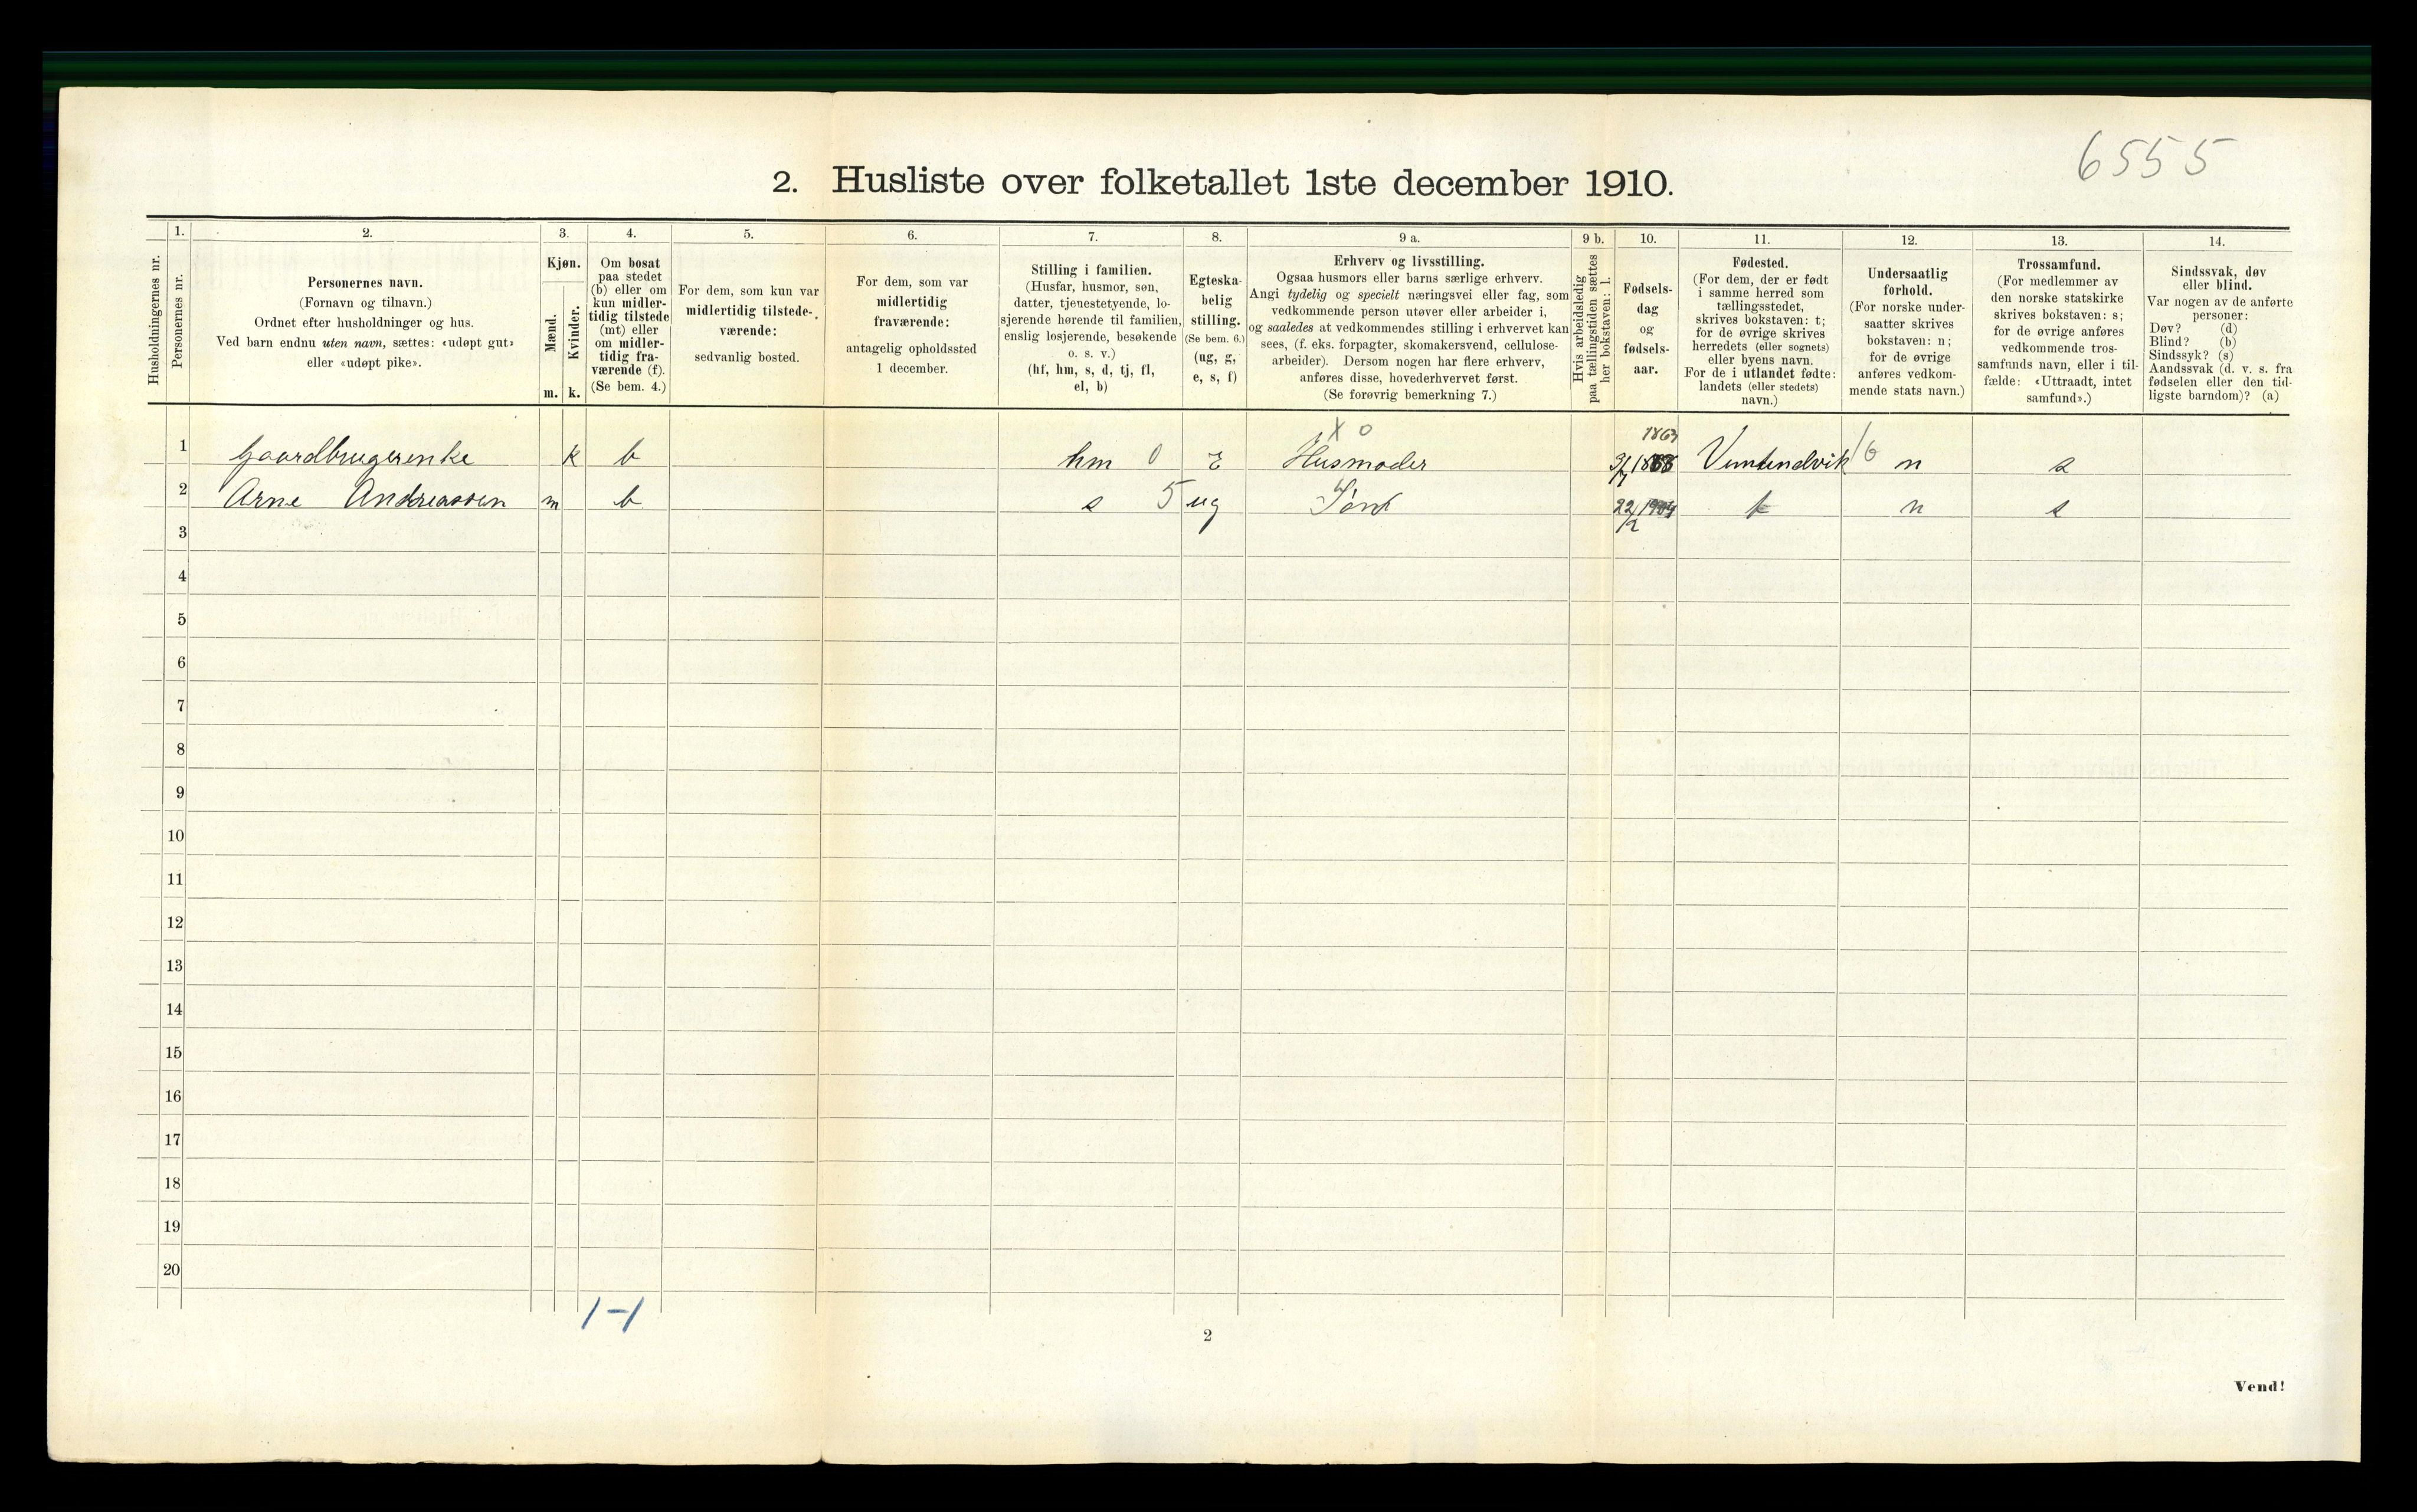 6555
2. Husliste over folketallet 1ste december 1910.
1. 2. 3. 4. 5. 6. 7. 8. 9 a. 9 b. 10. 11. 12. 13. 14.
Husholdningernes nr.
Personernes nr.
Personernes navn.
(Fornavn og tilnavn.)
Ordnet efter husholdninger og hus.
Ved barn endnu uten navn, sættes: «udøpt gut»
eller «udøpt pike».
Kjøn.
Mænd.
Kvinder.
m. k.
Om bosat
paa stedet
(b) eller om
kun midler-
tidig tilstede
(mt) eller
om midler-
tidig fra-
værende (f).
(Se bem. 4.)
For dem, som kun var
midlertidig tilstede-
værende:
sedvanlig bosted.
For dem, som var
midlertidig
fraværende:
antagelig opholdssted
1 december.
Stilling i familien.
(Husfar, husmor, søn,
datter, tjenestetyende, lo-
sjerende hørende til familien,
enslig losjerende, besøkende
o. s. v.)
(hf, hm, s, d, tj, fl,
el, b)
Egteska-
belig
stilling.
(Se bem. 6.)
(ug, g,
e, s, f)
Erhverv og livsstilling.
Ogsaa husmors eller barns særlige erhverv.
Angi tydelig og specielt næringsvei eller fag, som
vedkommende person utøver eller arbeider i,
og saaledes at vedkommendes stilling i erhvervet kan
sees, (f. eks. forpagter, skomakersvend, cellulose-
arbeider). Dersom nogen har flere erhverv,
anføres disse, hovederhvervet først.
(Se forøvrig bemerkning 7.)
Hvis arbeidsledig
paa tællingstiden sættes
her bokstaven: l.
Fødsels-
dag
og
fødsels-
aar.
Fødested.
(For dem, der er født
i samme herred som
tællingsstedet,
skrives bokstaven: t;
for de øvrige skrives
herredets (eller sognets)
eller byens navn.
For de i utlandet fødte:
landets (eller stedets)
navn.)
Undersaatlig
forhold.
(For norske under-
saatter skrives
bokstaven: n;
for de øvrige
anføres vedkom-
mende stats navn.)
Trossamfund.
(For medlemmer av
den norske statskirke
skrives bokstaven: s;
for de øvrige anføres
vedkommende tros-
samfunds navn, eller i til-
fælde: «Uttraadt, intet
samfund».)
Sindssvak, døv
eller blind.
Var nogen av de anførte
personer:
Døv? (d)
Blind? (b)
Sindssyk? (s)
Aandssvak (d. v. s. fra
fødselen eller den tid-
ligste barndom)? (a)
X 0 1863
1 Gaardbrugerenke k b hm 0 E Husmoder n s
2 Arne Andreassen m b s 5 ug t n s
3
4
5
6
7
8
9
10
11
12
13
14
15
16
17
18
19
20
1-1
2
Vend!